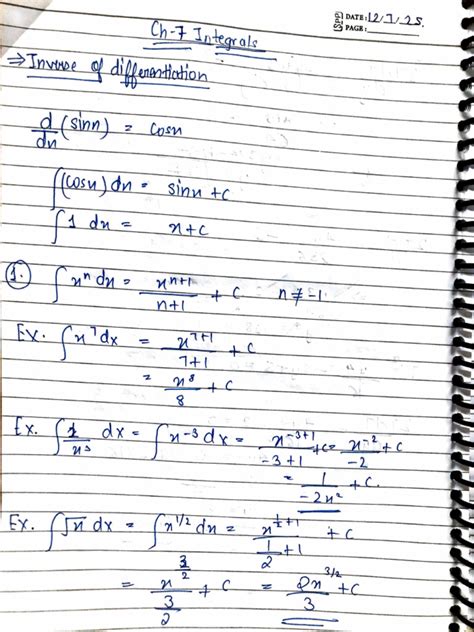 DATE: 12/7/25.
PAGE:
Ch-7 Integrals
⇒ Inverse of differentiation
d/dx (sinx) = cosx
∫(cosx) dx = sinx + c
∫1 dx = x + c
1. ∫xⁿ dx = xⁿ⁺¹/n+1 + c n ≠ -1
Ex. ∫x⁷ dx = x⁷⁺¹/7+1 + c
= x⁸/8 + c
Ex. ∫1/x³ dx = ∫x⁻³ dx = x⁻³⁺¹/-3+1 + c = x⁻²/-2 + c
= 1/-2x² + c.
Ex. ∫√x dx = ∫x^1/2 dx = x^(1/2+1)/(1/2+1) + c
= x^(3/2)/(3/2) + c = 2x^3/2/3 + c